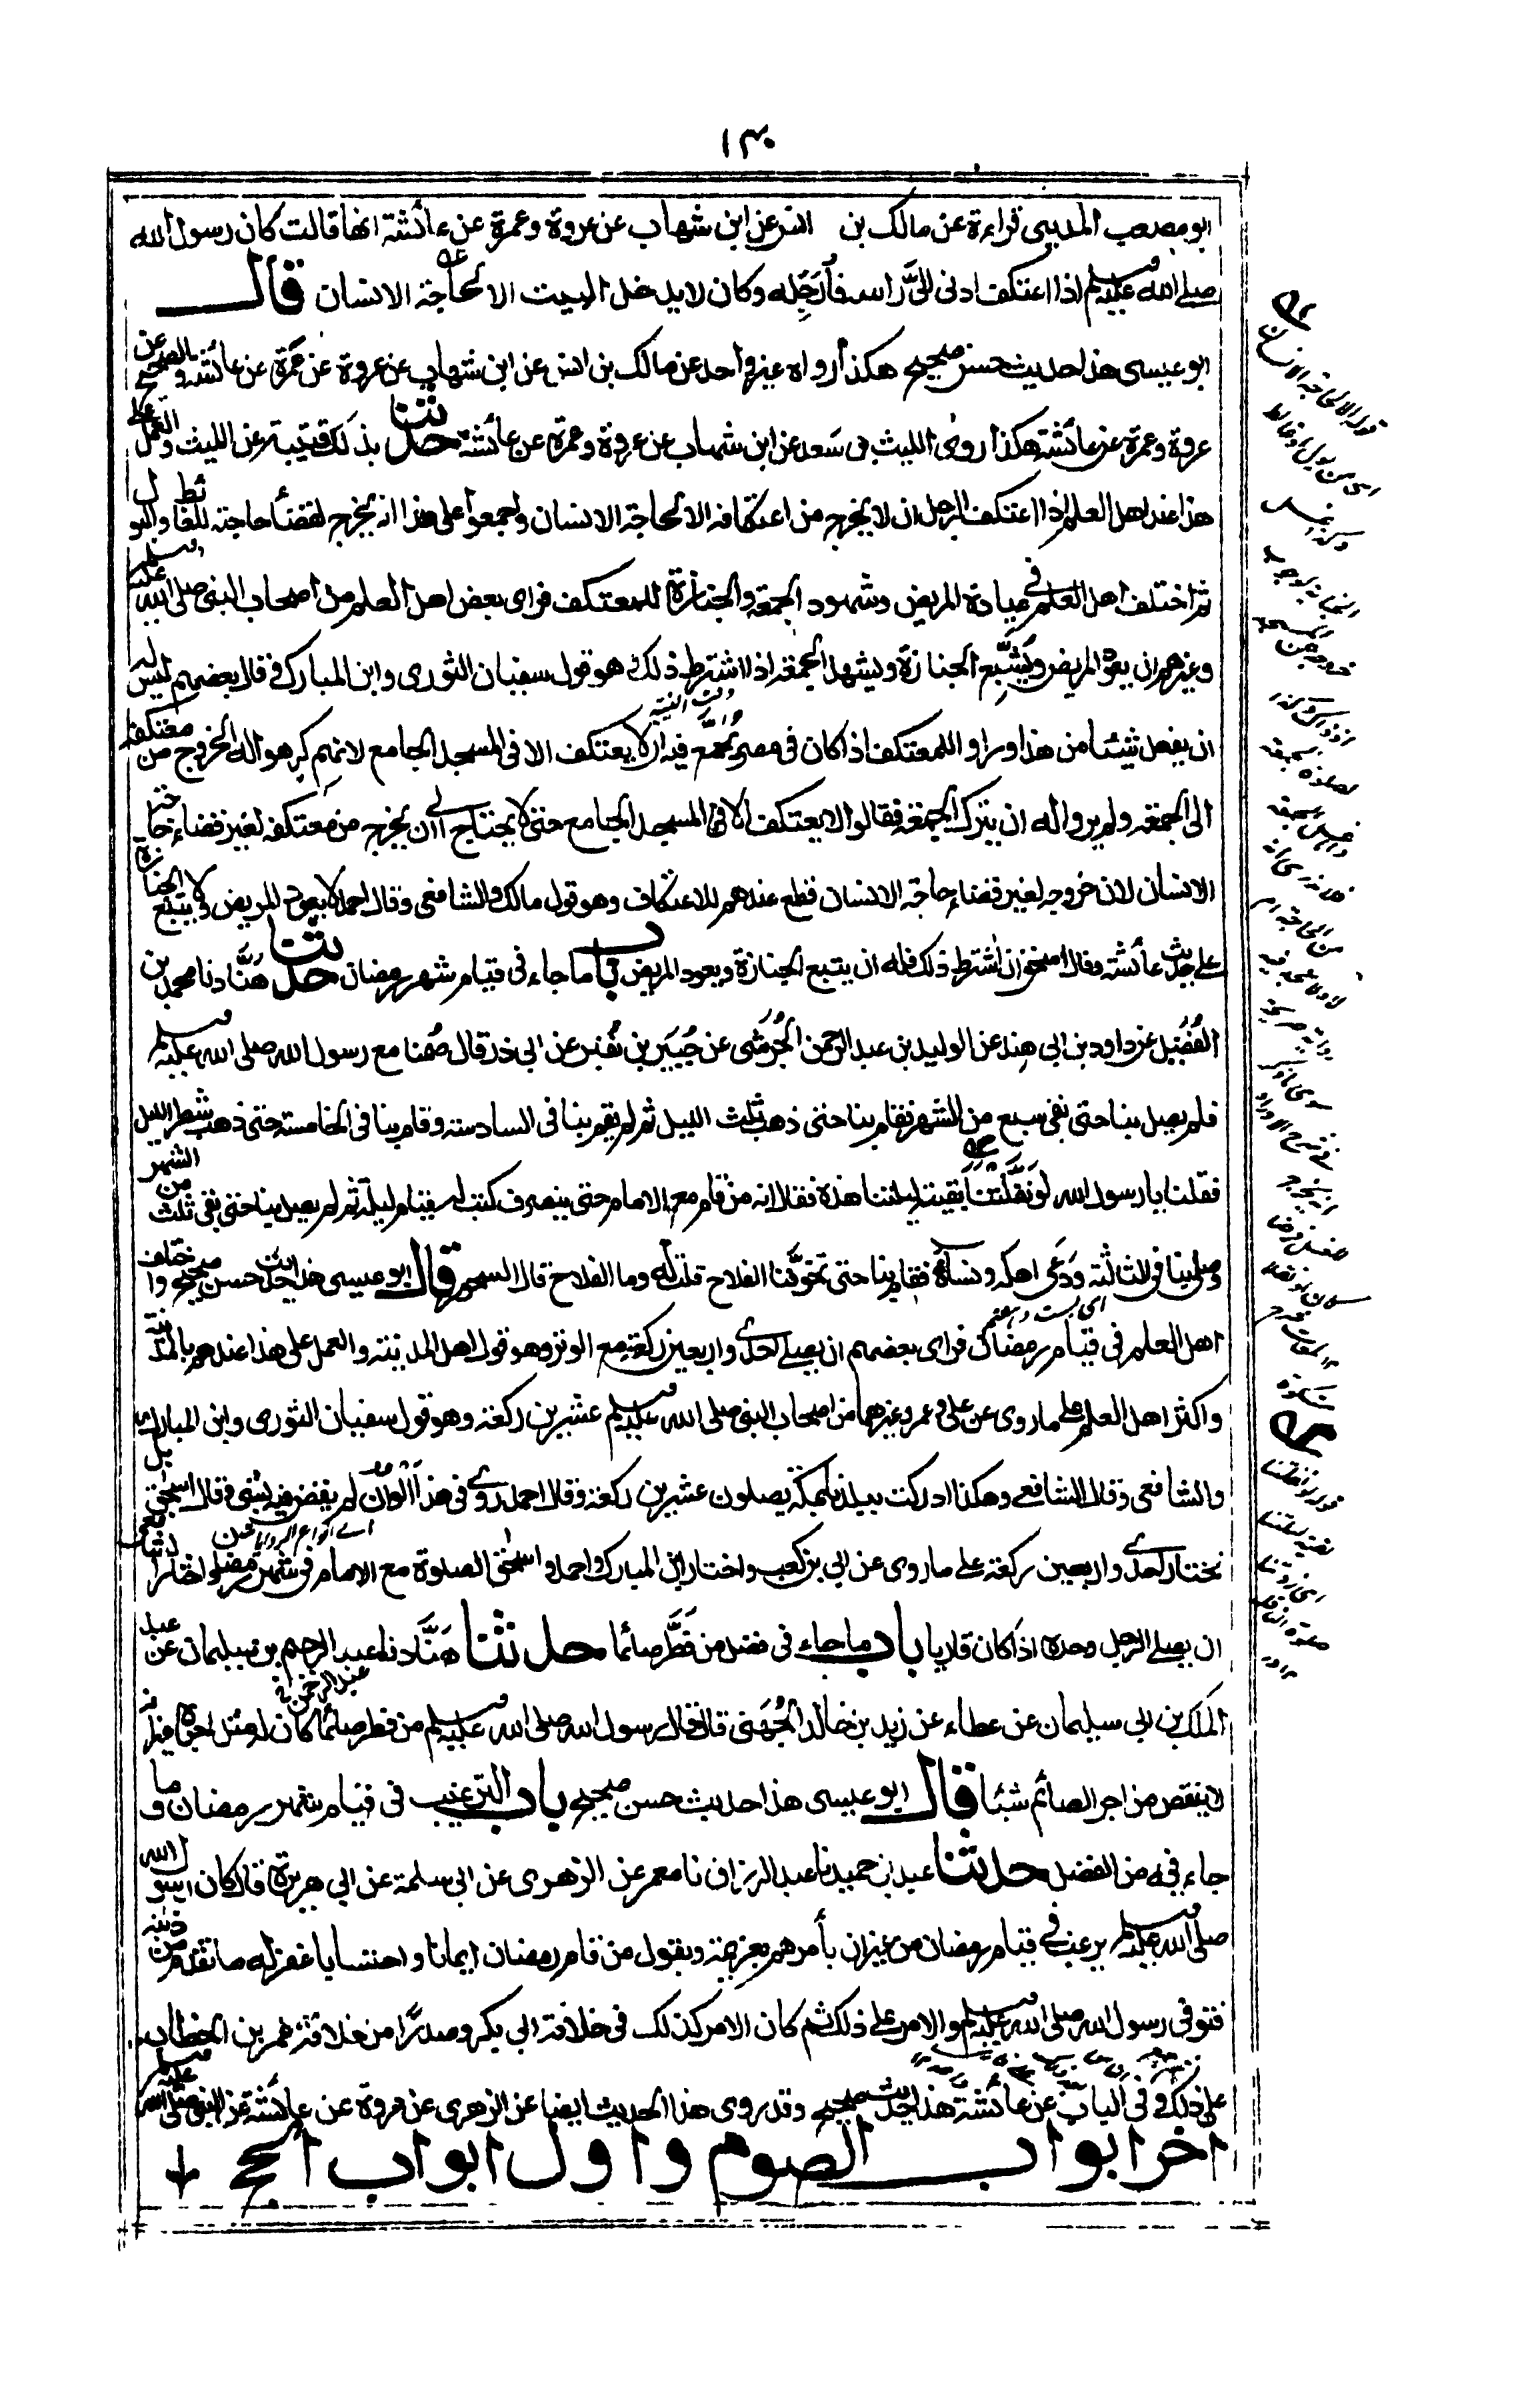 ١٣٠
ابو مصعب المديني قراءة عن مالك بن انس عن ابن شهاب عن عروة وعمرة عن عائشة انها قالت كان رسول الله
صلى الله عليه وسلم اذا اعتكف ادنى اليَّ راسه فأُرَجِّله وكان لا يدخل البيت الا لحاجة الانسان قال
ابو عيسى هذا حديث حسن صحيح هكذا رواه غير واحد عن مالك بن انس عن ابن شهاب عن عروة عن عَمْرة عن عائشة والصحيح عن
عروة وعمرة عن عائشة هكذا روى الليث بن سَعد عن ابن شهاب عن عروة وعمرة عن عائشة حدثنا بذلك قتيبة عن الليث والعمل على
هذا عند اهل العلم اذا اعتكف الرجل ان لا يخرج من اعتكافه الا لحاجة الانسان واجمعوا على هذا انه يخرج لقضاء حاجته للغائط والبول
ثم اختلف اهل العلم في عيادة المريض وشهود الجمعة والجنازة للمعتكف فراى بعض اهل العلم من اصحاب النبي صلى الله عليه وسلم
وغيرهم ان يعود المريض ويُشَيِّع الجنازة ويشهد الجمعة اذا اشترط ذلك وهو قول سفيان الثوري وابن المبارك وقال بعضهم ليس له
ان يفعل شيئا من هذا وراوا للمعتكف اذا كان في مصر يُجَمَّع فيه ان لا يعتكف الا في المسجد الجامع لانهم كرهوا له الخروج من معتكفه
الى الجمعة ولم يروا له ان يترك الجمعة فقالوا لا يعتكف الا في المسجد الجامع حتى لا يحتاج الى ان يخرج من معتكفه لغير قضاء حاجة
الانسان لان خروجه لغير قضاء حاجة الانسان قطع عندهم للاعتكاف وهو قول مالك والشافعي وقال احمد لا يعود المريض ولا يتبع الجنازة
على حديث عائشة وقال اسحق ان اشترط ذلك فله ان يتبع الجنازة ويعود المريض باب ما جاء في قيام شهر رمضان حدثنا هَنَّاد نا محمد بن
الفُضَيل عن داود بن ابي هند عن الوليد بن عبد الرحمن الجُرَشي عن جُبَير بن نُفَير عن ابي ذر قال صُمنا مع رسول الله صلى الله عليه وسلم
فلم يصل بنا حتى بقي سبع من الشهر فقام بنا حتى ذهب ثلث الليل ثم لم يقم بنا في السادسة وقام بنا في الخامسة حتى ذهب شطر الليل
فقلنا يا رسول الله لو نَفَّلْتَنا بقية ليلتنا هذه فقال انه من قام مع الامام حتى ينصرف كتب له قيام ليلة ثم لم يصل بنا حتى بقي ثلث من الشهر
وصلى بنا في الثالثة ودَعَى اهله ونساءه فقام بنا حتى تخوَّفنا الفلاح قلت له وما الفلاح قال السحور قال ابو عيسى هذا حديث حسن صحيح واختلف
اهل العلم في قيام رمضان فراى بعضهم ان يصلي احدى واربعين ركعة مع الوتر وهو قول اهل المدينة والعمل على هذا عندهم بالمدينة
واكثر اهل العلم على ما روى عن علي وعمر وغيرهما من اصحاب النبي صلى الله عليه وسلم عشرين ركعة وهو قول سفيان الثوري وابن المبارك
والشافعي وقال الشافعي وهكذا ادركت ببلدنا بمكة يصلون عشرين ركعة وقال احمد روي في هذا الوان لم يقض فيه بشي وقال اسحق بل
نختار احدى واربعين ركعة على ما روى عن ابي بن كعب واختار ابن المبارك واحمد واسحق الصلوة مع الامام في شهر رمضان واختار الشافعي
ان يصلي الرجل وحده اذا كان قاريا باب ما جاء في فضل من فَطَّر صائما حدثنا هَنَّاد نا عبد الرحيم بن سليمان عن عبد
الملك بن ابي سليمان عن عطاء عن زيد بن خالد الجُهَني قال قال رسول الله صلى الله عليه وسلم من فطر صائما كان له مثل اجره غير انه
لا ينقص من اجر الصائم شيئا قال ابو عيسى هذا حديث حسن صحيح باب الترغيب في قيام شهر رمضان وما
جاء فيه من الفضل حدثنا عبد بن حميد نا عبد الرزاق نا معمر عن الزهري عن ابي سلمة عن ابي هريرة قال كان رسول الله
صلى الله عليه وسلم يرغب في قيام رمضان من غير ان يأمرهم بعزيمة ويقول من قام رمضان ايمانا واحتسابا غفر له ما تقدم من ذنبه
فتوفي رسول الله صلى الله عليه وسلم والامر على ذلك ثم كان الامر كذلك في خلافة ابي بكر وصدرًا من خلافة عمر بن الخطاب
على ذلك وفي الباب عن عائشة هذا حديث صحيح وقد روى هذا الحديث ايضا عن الزهري عن عروة عن عائشة عن النبي صلى الله عليه وسلم
اخر ابواب الصوم واول ابواب الحج